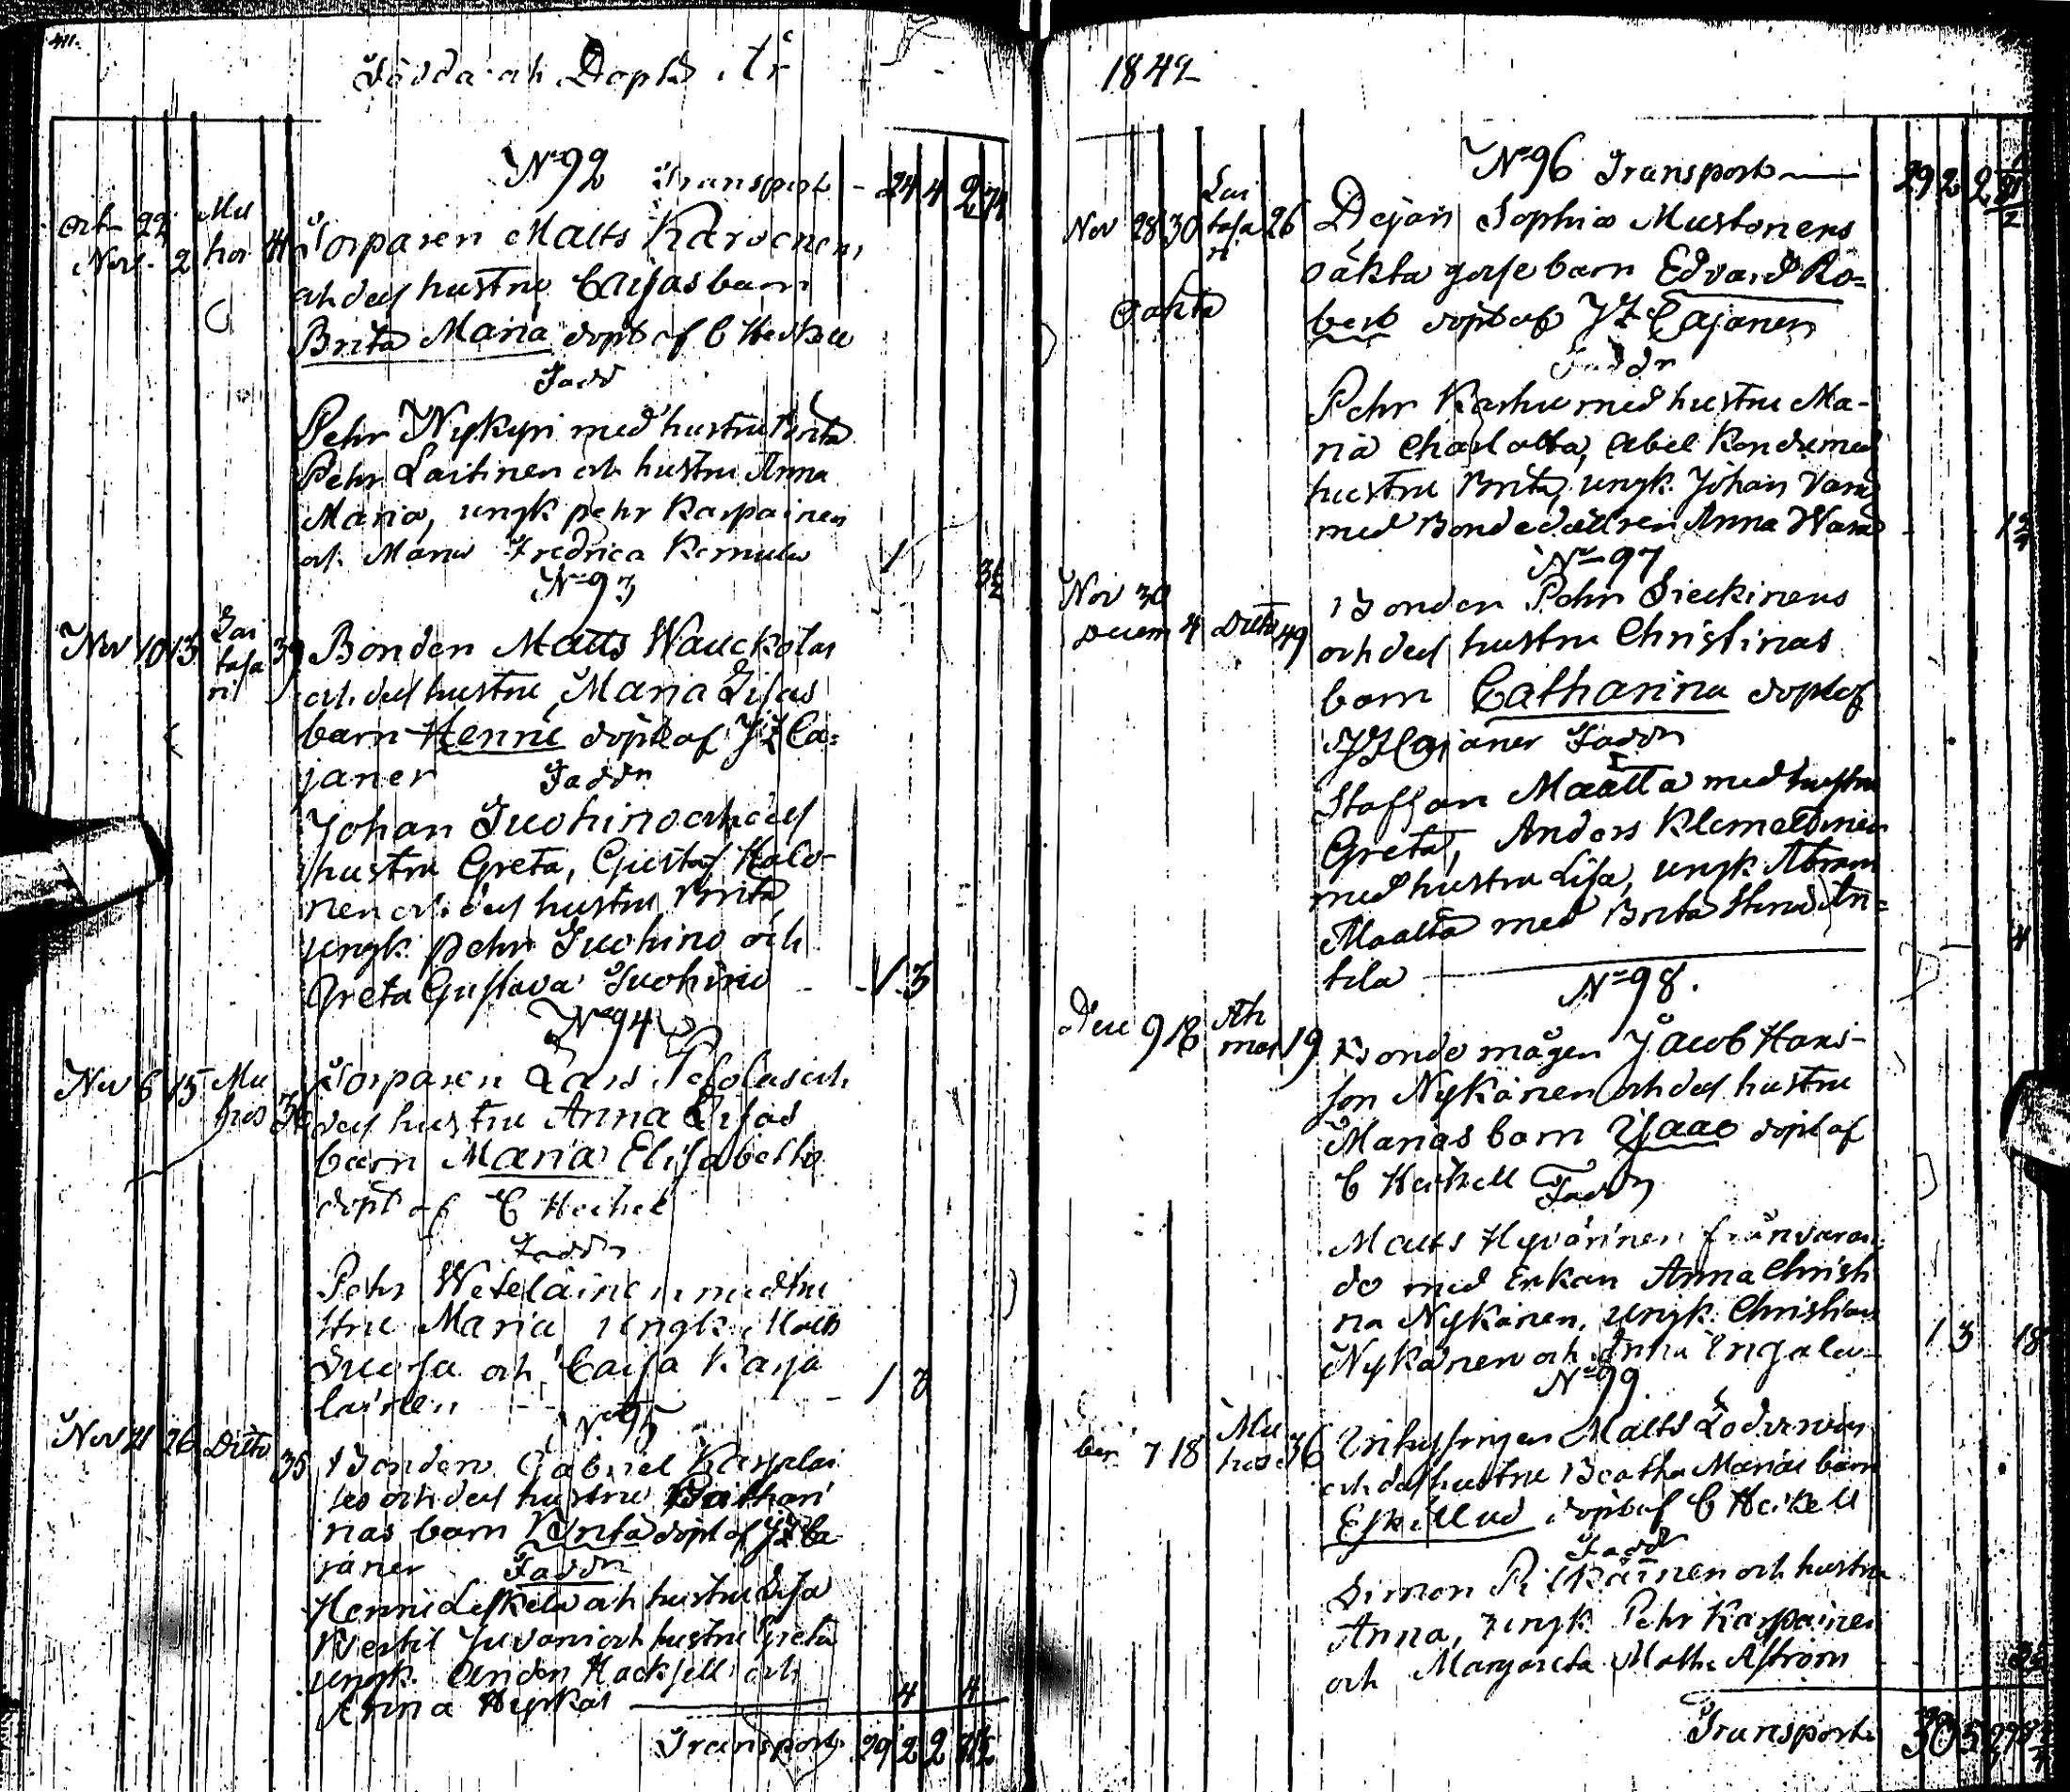 411.
Födda och Döpta År
N=o 92 Transport - 24 4 2
Oct 22 Mu
Nov. 2 hos Torparen Matts Karvonens
och dess hustru Caisas barn
Brita Maria döpt af C Heikell
Fadd
Pehr Nykyri med hustru Brita
Pehr Laitinen och hustru Anna
Maria, ungk pehr Karpainen
och Maria Fredrica Kemula 1 3½
N=o 93
Nov 10 13 Lai tasa ri 39 Bonden Matts Wauckolas
och dess hustru Maria Lisas
barn Henric döpt af JF Ca=
janer Faddr
Johan Suohino och dess
hustru Greta, Gustaf Halo-
nen och dess hustru Brita
ungk. pehr Suohino och
Greta Gustava Suohino - 1 3
N=o 94
Nov 6 15 Mu hos 36 Torparen Lars och
dess hustru Anna Lisas
barn Maria Elisabetha
döpt af C Heikel
Faddr
Pehr Weteläinen med hu
stru Maria ungk. Matts
Suorsa och Caisa Karja
lainen - 1 3
N=o 95
Nov 21 26 Ditto 35 Bonden Gabriel Karjalai
ses och dess hustru Cathari
nas barn Brita döpt af JF Ca
janer Faddr
Henric Leskelä och hustru Lisa
Bertil Juvani och hustru Greta
ungk. Anders Hacksell och
Anna Hyrkäs 4 4
Transport 29 2 2
1849
N=o 96 Transport 29 2 2
Nov 28 30 Lai tasa ri 26 Dejan Sophia Mustonens
oäkta gosse barn Edvard Ro=
oäkta bert döpt af JF Cajaner
Faddr
Pehr Karhu med hustru Ma-
ria Charlotta, Abel Kondie med
hustru Brita, ungk. Johan Vara
med Bondedottren Anna Wara
N=o 97
Nov 30 Bonden Pehr Sieckinens
Decem 4 Ditto 49 och dess hustru Christinas
barn Catharina döpt af
JF Cajaner Faddr
Staffan Määttä med hustru
Greta, Anders Klemettinen
med hustru Lisa, ungk. Abram
Määttä med Brita Stina An=
tila 4
N=o 98.
Dec 9 16 Ah mas 19 Bonde mågen Jacob Hans-
son Nykänen och dess hustru
Marias barn Isaac döpt af
C Heikell Faddr
Matts Hyvärinen frånvaran
de med Enkan Anna Christi
na Nykänen, ungk. Christian
Nykänen och Anna Ingalu- 1 3 18
N=o 99.
ber 7 18 Mu hos 36 Matts Lodvervan
och dess hustru Beatha Marias barn
döpt af C Heikell
Fadd
Simon Pitkänen och hustru
Anna, ungk. Pehr Karpainen
och Margareta Math. Aström
Transport 30 5